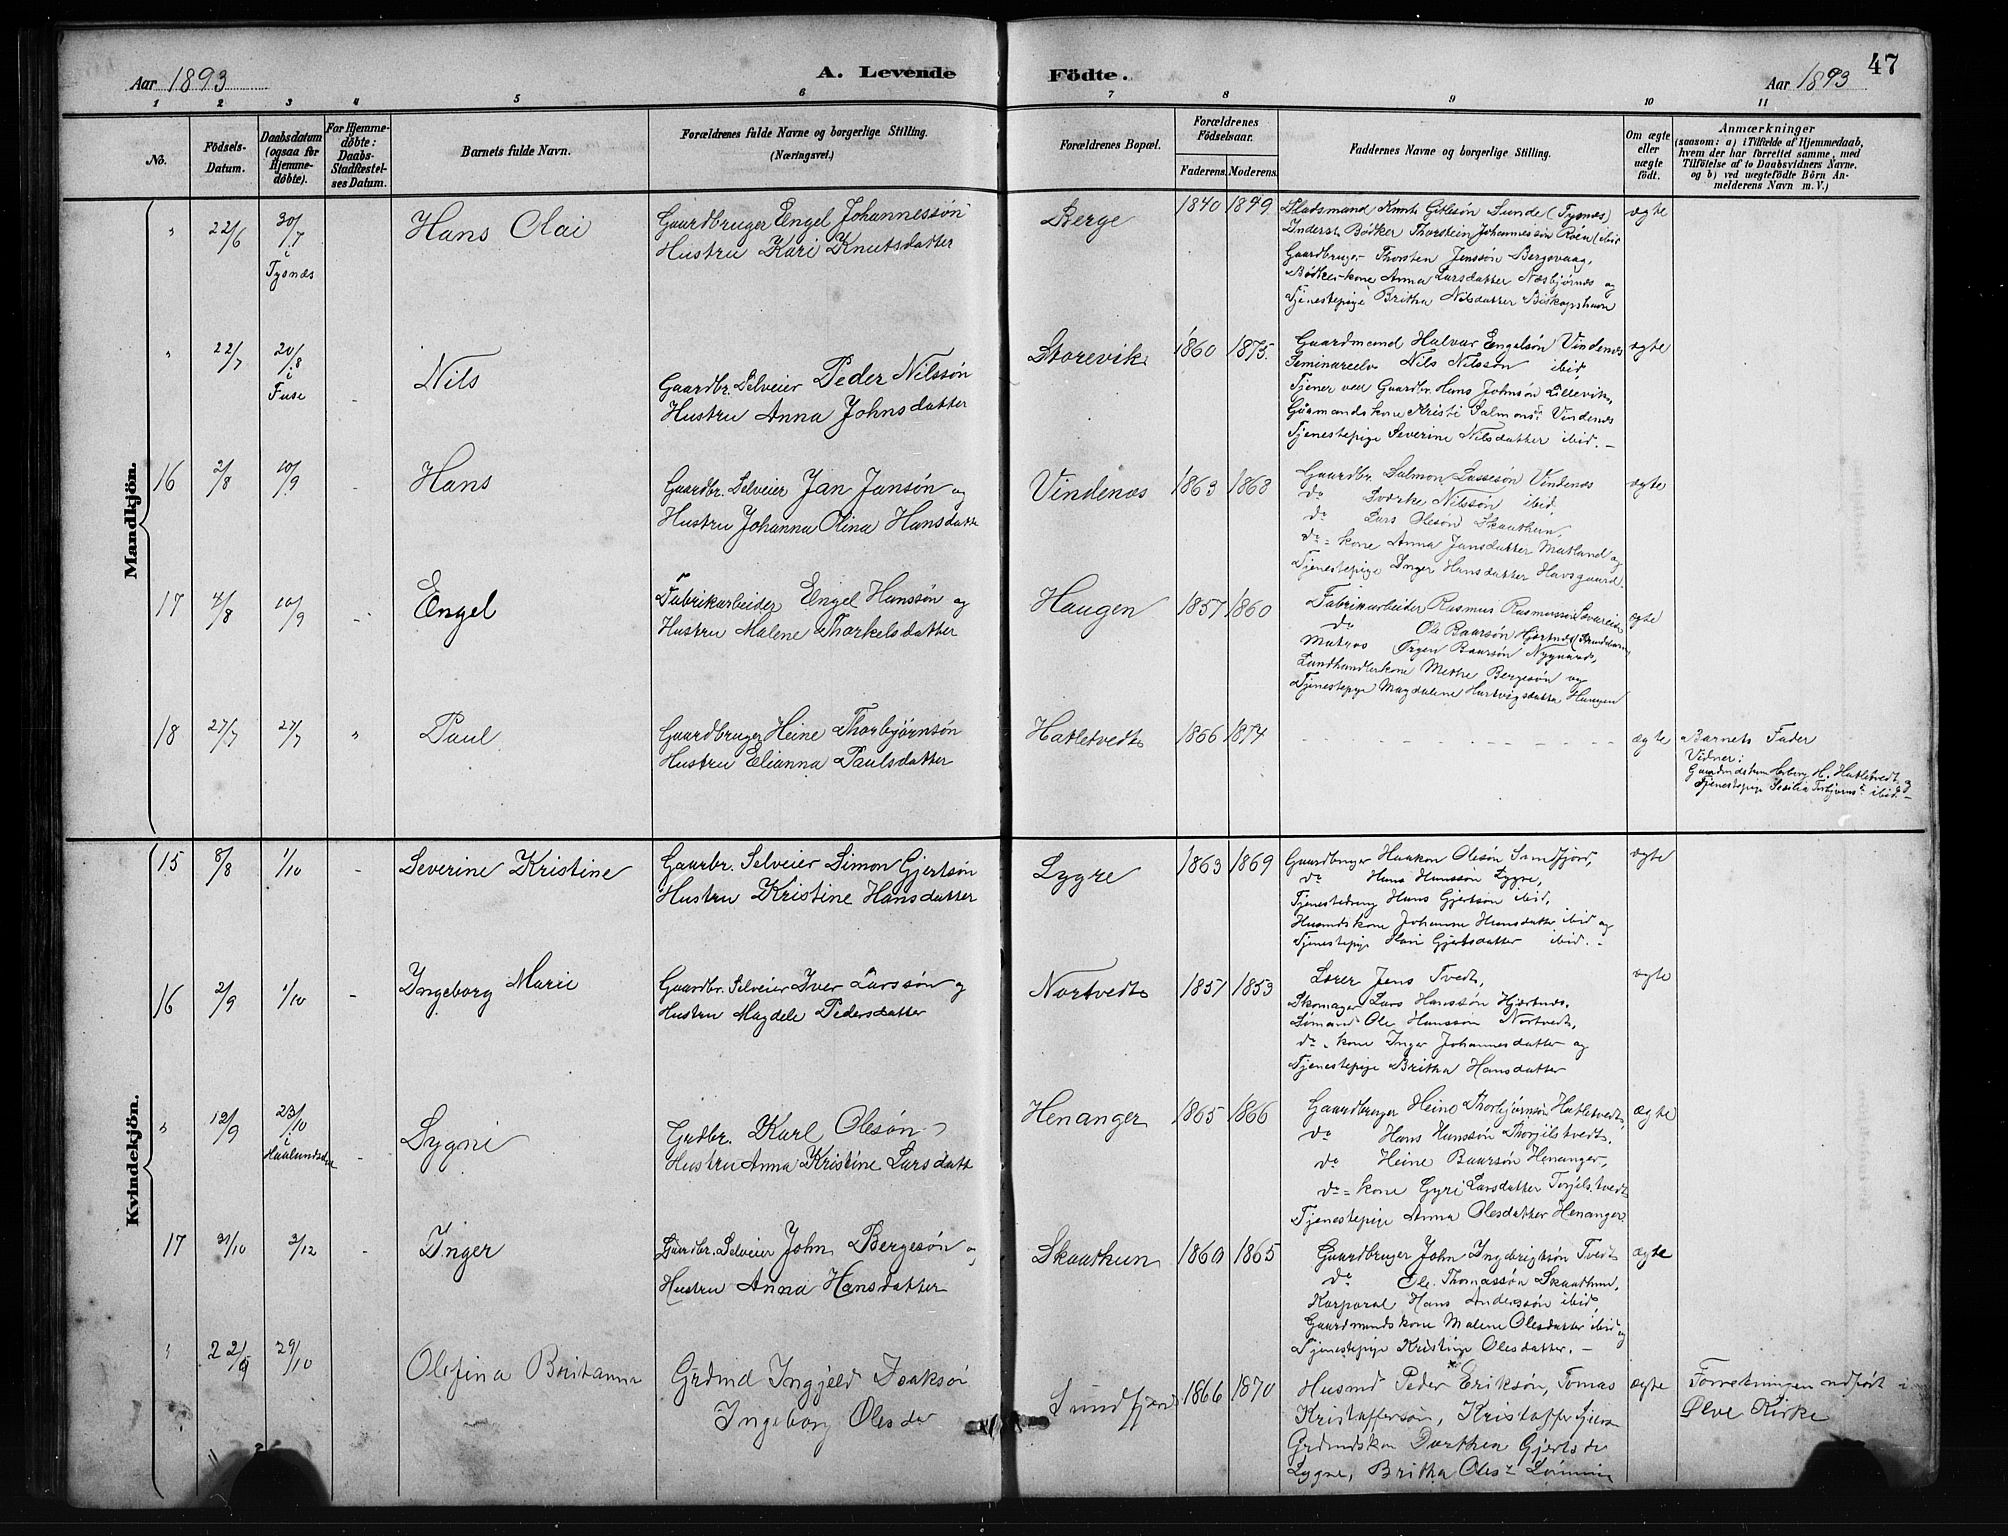 47
Aar 1893
A. Levende Födte.
Aar 1893
1 2 3 4 5 6 7 8 9 10 11
No.
Födsels-Datum.
Daabsdatum (ogsaa for Hjemmedöbte).
For Hjemmedöbte: Daabs-Stadfæstelses Datum.
Barnets fulde Navn.
Forældrenes fulde Navne og borgerlige Stilling.
(Næringsvei.)
Forældrenes Bopæl.
Forældrenes Födselsaar.
Faderens. Moderens.
Faddernes Navne og borgerlige Stilling.
Om ægte eller uægte født.
Anmærkninger
(saasom: a) i Tilfælde af Hjemmedaab,
hvem der har forrettet samme, med
Tilföielse af to Daabsvidners Navne.
og b) ved uægtefödte Börn An-
melderens Navn m. V.)
Mandkjön.
" 22/6 30/7 i Tysnæs
Hans Olai
Gaardbruger Engel Johannessön
Hustru Kari Knutsdatter
Berge
1840 1849
Pladsmand Knut Gitlesön Sunde (Tysnæs)
Inderst Bödker Thorstein Johannessön Roen (ibid
Gaardbruger Thorsten Jenssön Bergsvaag,
Bödkerkone Anna Larsdatter Næsbjörnes og
Tjenestepige Britha Nilsdatter Biskopshavn
ægte
" 22/7 20/8 i Fuse -
Nils
Gaardbr. Selveier Peder Nilssön
Hustru Anna Johnsdatter
Storevik
1860 1875.
Gaardmand Halvar Engelsön Vindenes
Seminarelev Nils Nilssön ibid,
Tjener ved Gaardbr. Hans Johnsön Lillevik,
Gårmandskone Kristi Salmonsd. Vindenes
Tjenestepige Severine Nilsdatter ibid. -
ægte
16 2/8 10/9 -
Hans
Gaardbr. Selveier Jan Jansön og
Hustru Johanna Olina Hansdatt
Vindenæs
1863 1868
Gaardbr. Salmon Lassesön Vindenæs
do Sverke Nilssön ibid,
do Lars Olesön Skaathun,
do - kone Anna Jansdatter Matland og
Tjenestepige Inger Hansdatter Havsgaard
ægte
17 4/8 10/9 -
Engel
Fabrikarbeider Engel Hanssön og
Hustru Malene Thorkelsdatter
Haugen
1857 1860
Fabrikarbeider Rasmus Rasmussön Sævareid
do Ole Baarsön Hjertnes
Matros Örgen Baarsön Nygaard,
Landhandlerkone Methe Bergesön og
Tjenestepige Magdalene Hartvigsdatter Haugen
ægte
18 27/7 27/7 "
Paul
Gaardbruger Heine Thorbjørnsön
Hustru Elianna Paulsdatter
Hatletvedt
1866 1874
ægte
Barnets Fader
Vidner:
H. Hatletvedt og
Tjenestepige ibid. -
Kvindekjön.
15 8/8 1/10 -
Severine Kristine
Gaarbr. Selveier Simon Gjertsön
Hustru Kristine Hansdatter
Lygre
1863 1869
Gaardbruger Haakon Olesön Sundfjord,
do Hans Hanssön Lygre,
Tjenestedreng Hans Gjertsön ibid,
Husmdskone Johanne Hansdatter ibid og
Tjenestepige Kari Gjertsdatter ibid. -
ægte
16 2/9 1/10 -
Ingeborg Marie
Gaardbr. Selveier Iver Larssön og
Hustru Magdele Pedersdatter
Nortvedt
1857 1853
Lærer Jens Tvedt,
Skomager Lars Hanssön Hjærtnæs.
Sömand Ole Hanssön Nortvedt,
do - kone Inger Johannesdatter og
Tjenestepige Britha Hansdatter
ægte
" 12/9 23/10 i Haalandsdal -
Sygni
Grdbr. Karl Olesön
Hustru Anna Kristine Larsdatt
Henanger
1865 1866
Gaardbruger Heine Thorbjørnsön Hatletvedt,
do Hans Hanssön Thorjilstvedt,
do Heine Baarsön Henanger,
do - kone Gyri Larsdatter Torjilstvedt
Tjenestepige Anna Olesdatter Henanger
ægte
17 31/10 3/12 -
Inger
Gaardbr. Selveier John Bergesön og
Hustru Anna Hansdatter
Skaathun
1860 1865
Gaardbruger John Ingebrigtsön Tvedt
do Ole Thomassön Skaathun,
Korporal Hans Anderssön ibid,
Gaardmandskone Malene Olesdatter ibid og
Tjenestepige Kristinge Olesdatter. -
ægte
" 22/9 29/10
Olefina Britanna
Grdmd Ingjeld Isaksön
Ingeborg Olesda
Sundfjord
1866 1870
Husmd Peder Eriksön, Tomas
Kristaffersön, Kristaffer
Grdmdskon Dorthea Gjertsda
Lygre, Britha Olesd
ægte
Forretningen udført i
Ølve Kirke